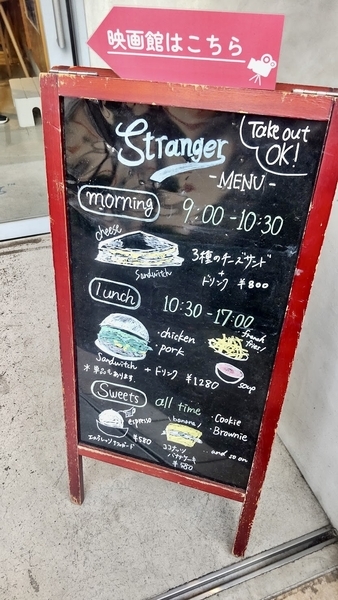 映画館はこちら
Stranger
Take out
OK!
- MENU -
morning 9:00 - 10:30
cheese
sandwitch
3種のチーズサンド
+
ドリンク ¥800
lunch 10:30 - 17:00
・chicken
・pork
french
fries!
sandwitch
+ ドリンク ¥1280
soup
※単品もあります。
Sweets all time
・Cookie
・Brownie
espresso
banana
¥580
ココナッツ
バナナケーキ
¥580
and so on